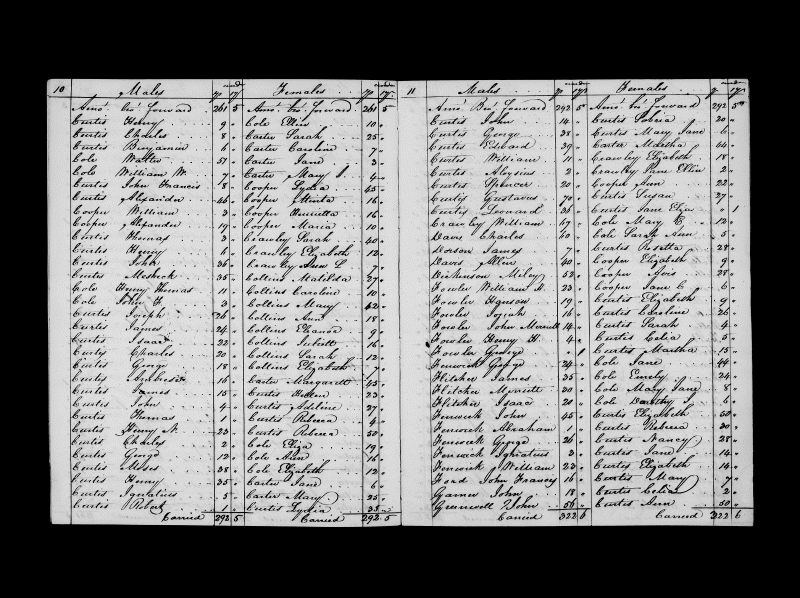 10 Males Females
Amo. bro. forward 261 5 Amo. bro. forward 261 5
Curtis Henry 9 " Cole Ellen 10 "
Curtis Charles 8 " Carter Sarah 25 "
Curtis Benjamin 6 " Carter Caroline 7 "
Cole Walter 51 " Carter Jane 3 "
Cole William W. 7 " Carter Mary 4 "
Curtis John Francis 8 " Cooper Lydia 45 "
Curtis Alexander 46 " Cooper Minta 16 "
Cooper William 3 " Cooper Henrietta 16 "
Cooper Alexander 19 " Cooper Maria 10 "
Curtis Thomas 3 " Crawley Sarah 40 "
Curtis Henry 6 " Crawley Elizabeth 12 "
Curtis John 36 " Crawley Ann L 7 "
Curtis Meshack 35 " Collins Matilda 27 "
Cole Henry Thomas 11 " Collins Caroline 10 "
Cole John F. 3 " Collins Mary 62 "
Curtis Joseph 26 " Collins Ann 18 "
Curtis James 24 " Collins Eleanor 9 "
Curtis Isaac 22 " Collins Juliett 16 "
Curtis Charles 20 " Collins Sarah 12 "
Curtis George 18 " Collins Elizabeth 7 "
Curtis Ambrose 16 " Carter Margarett 45 "
Curtis James 15 " Curtis Hellen 23 "
Curtis John 4 " Curtis Adeline 27 "
Curtis Thomas " Curtis Rebecca 4 "
Curtis Henry N. 23 " Curtis Rebecca 50 "
Curtis Charles 2 " Cole Eliza 19 "
Curtis George 12 " Cole Ann 16 "
Curtis Moses 38 " Cole Elizabeth 12 "
Curtis Henry 35 " Carter Jane 6 "
Curtis Ignatius 5 " Carter Mary 25 "
Curtis Robert 1 " Curtis Lydia 35 "
Carried 292 5 Carried 292 5
11 Males Females
Amo. Bro. forward 292 5 Amo. bro. forward 292 5
Curtis John 14 " Curtis 20 "
Curtis George 38 " Curtis Mary Jane 6 "
Curtis Edward 39 " Carter Martha 44 "
Curtis William 11 " Crawley Elizabeth 18 "
Curtis Aloysius 2 " Crawley Jane Ellen 2 "
Curtis Spencer 20 " Cooper Ann 22 "
Curtis Gustavus 70 " Curtis Susan 27 "
Curtis Leonard 36 " Curtis Jane Eliza " 1
Crawley William 17 " Cole Mary E. 12 "
Davis Charles 40 " Cole Sarah Ann 5 "
Dorson James 7 " Curtis Rosetta 28 "
Davis Allen 40 " Cooper Elizabeth 9 "
Dickinson Miley 52 " Cooper Avis 28 "
Fowler William H. 23 " Cooper Jane C 6 "
Fowler Hanson 19 " Curtis Elizabeth 9 "
Fowler Josiah 16 " Curtis Caroline 26 "
Fowler John Merritt 14 " Curtis Sarah 4 "
Fowler Henry H. 4 " Curtis Celia 3 "
Fowler George " 1 Curtis Martha 15 "
Fenwick George 24 " Cole Jane 44 "
Flitcher James 35 " Cole Emely 24 "
Flitcher 20 " Cole Mary Jane 8 "
Flitcher Isaac 20 " Cole Dorothy J. 6 "
Fenwick John 45 " Curtis Elizabeth 50 "
Fenwick Abraham 1 " Curtis Rebecca 30 "
Fenwick George 26 " Curtis Nancy 28 "
Fenwick Ignatius 3 " Curtis Jane 14 "
Fenwick William 23 " Curtis Elizabeth 14 "
Ford John Francis 16 " Curtis Mary 7 "
Garner John 18 " Curtis Celia 2 "
Greenwell John 56 " Curtis Ann 50 "
Carried 322 6 Carried 322 6